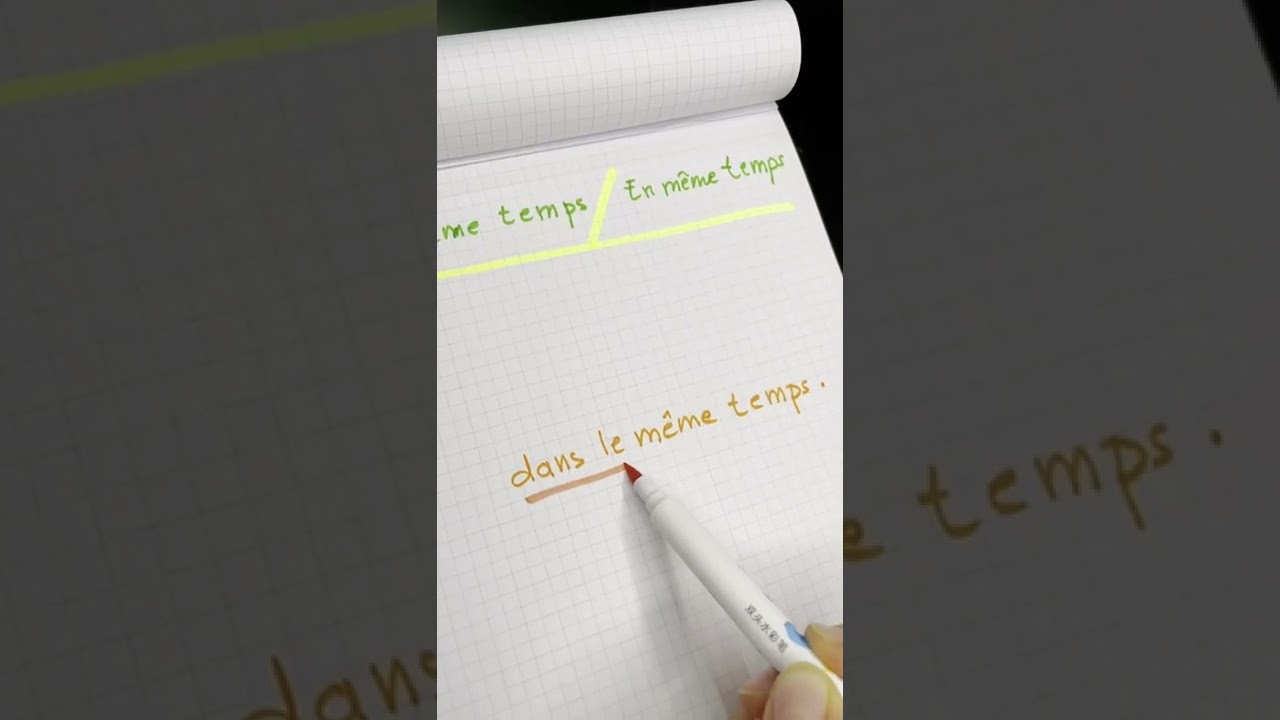 temps / En même temps
dans le même temps.
双头水彩笔
temps.
dans